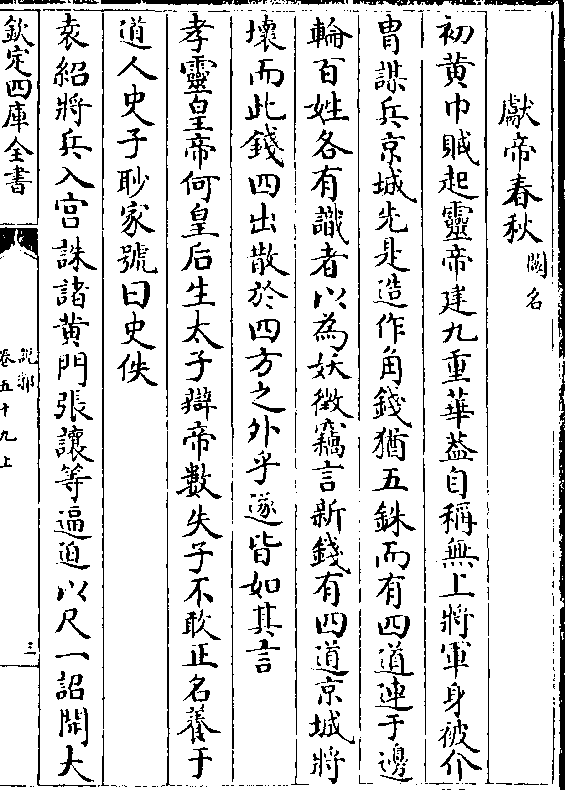 獻帝春秋 闕名
初黄巾賊起靈帝建九重華葢自稱無上將軍身被介
胄謀兵京城先是造作角錢猶五銖而有四道連于邊
輪百姓各有識者以為妖徴竊言新錢有四道京城將
壊而此錢四出散於四方之外乎遂皆如其言
孝靈皇帝何皇后生太子辯帝數失子不敢正名養于
道人史子眇家號曰史佚
袁紹將兵入宫誅諸黄門張讓等逼迫以尺一詔開大
欽定四庫全書
說郛
卷五十九上
三